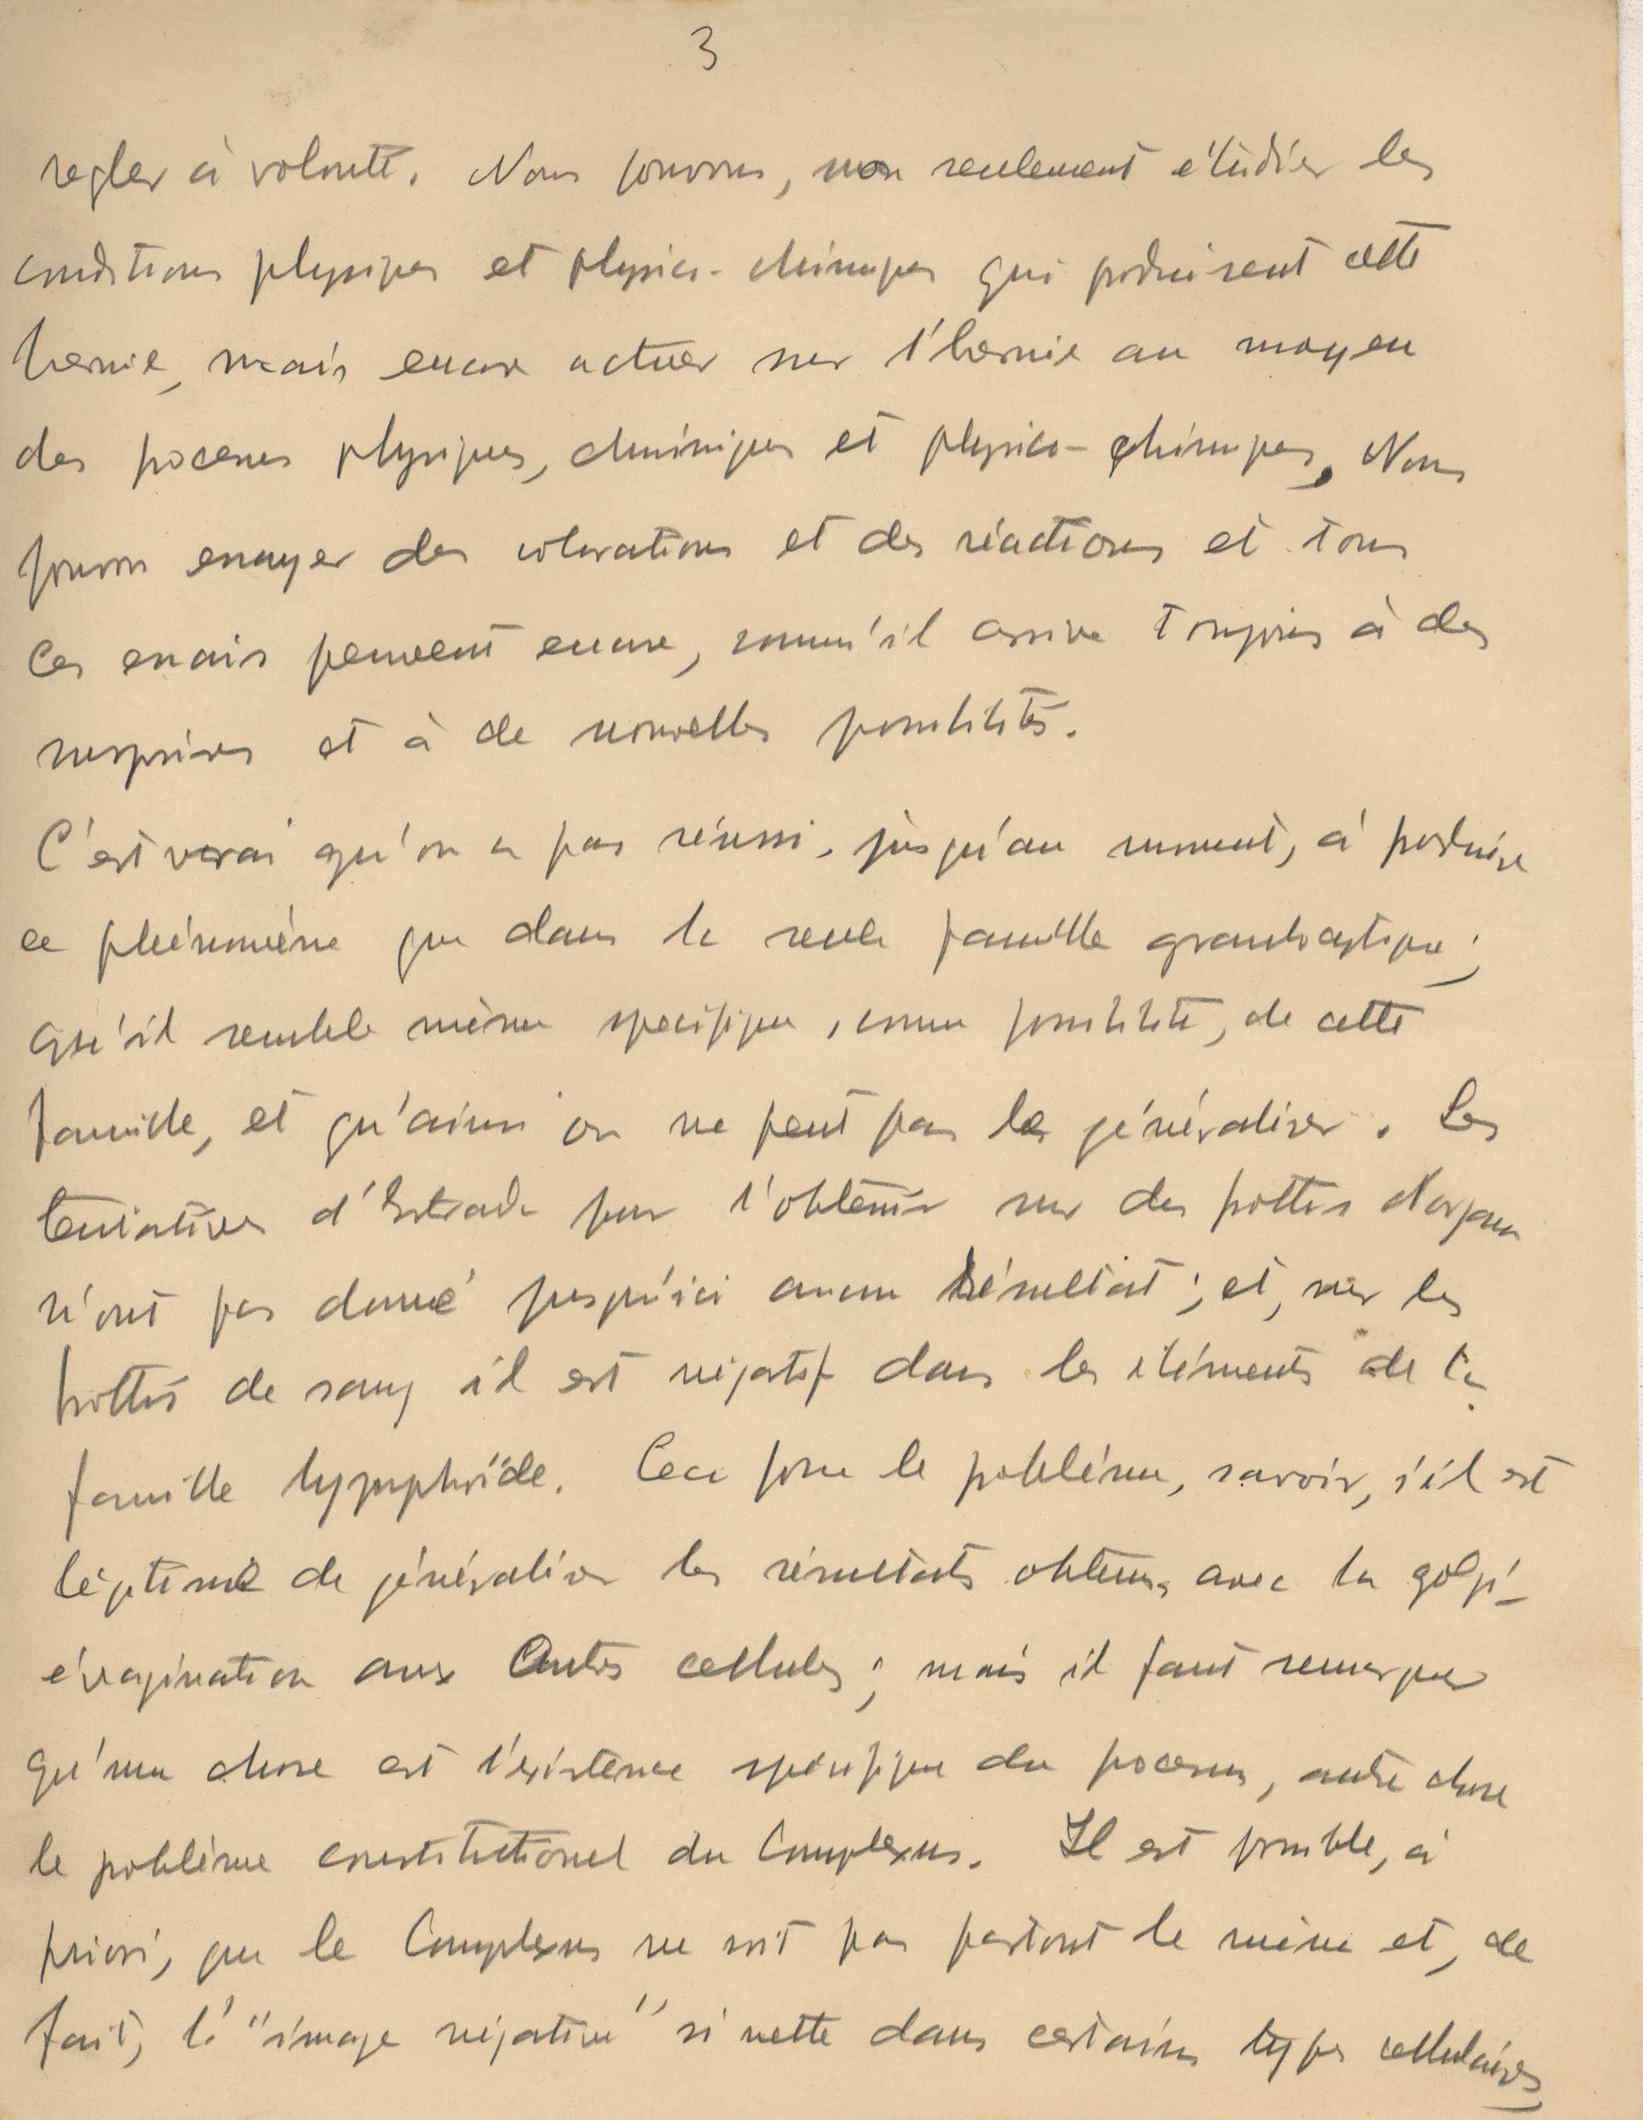 3
regler à volonté. Nous pouvons, non seulement étudier les
conditions physiques et physico-chimiques qui produisent cette
hernie, mais encore actuer sur l'hernie au moyen
des procesus physiques, chimiques et physico-chimiques. Nous
pouvons essayer des colorations et des réactions et tous
ces essais peuvent encore, comm'il arrive toujours à des
surprises et à de nouvelles possibilités.
C'est vrai qu'on a pas réussi, jusqu'au moment, à produire
ce phénomène que dans la seule famille granulocytique;
qu'il semble même specifique, comme possibilité, de cette
famille, et qu'ainsi on ne peut pas le généraliser. Les
tentatives d'Estrada pour l'obtenir sur des frottis d'organes
n'ont pas donné jusqu'ici aucun résultat; et, sur les
frottis de sang il est négatif dans les éléments de la
famille lymphoïde. Ceci pose le problème, savoir, s'il est
légitime de généraliser les résultats obtenus avec la golgi-
évagination aux autres cellules; mais il faut remarquer
qu'une chose est l'existence spécifique du procesus, autre chose
le problème constitutionel du Complexus. Il est possible, à
priori, que le Complexus ne soit pas partout le même et, de
fait, l'"image négative" si nette dans certains types cellulaires,